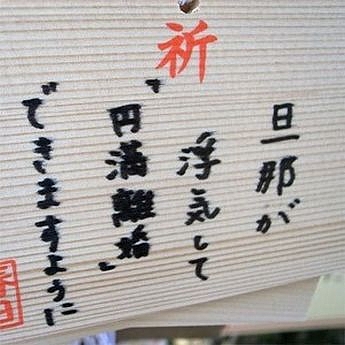 祈
旦那が
浮気して
〝円満離婚〟
できますように